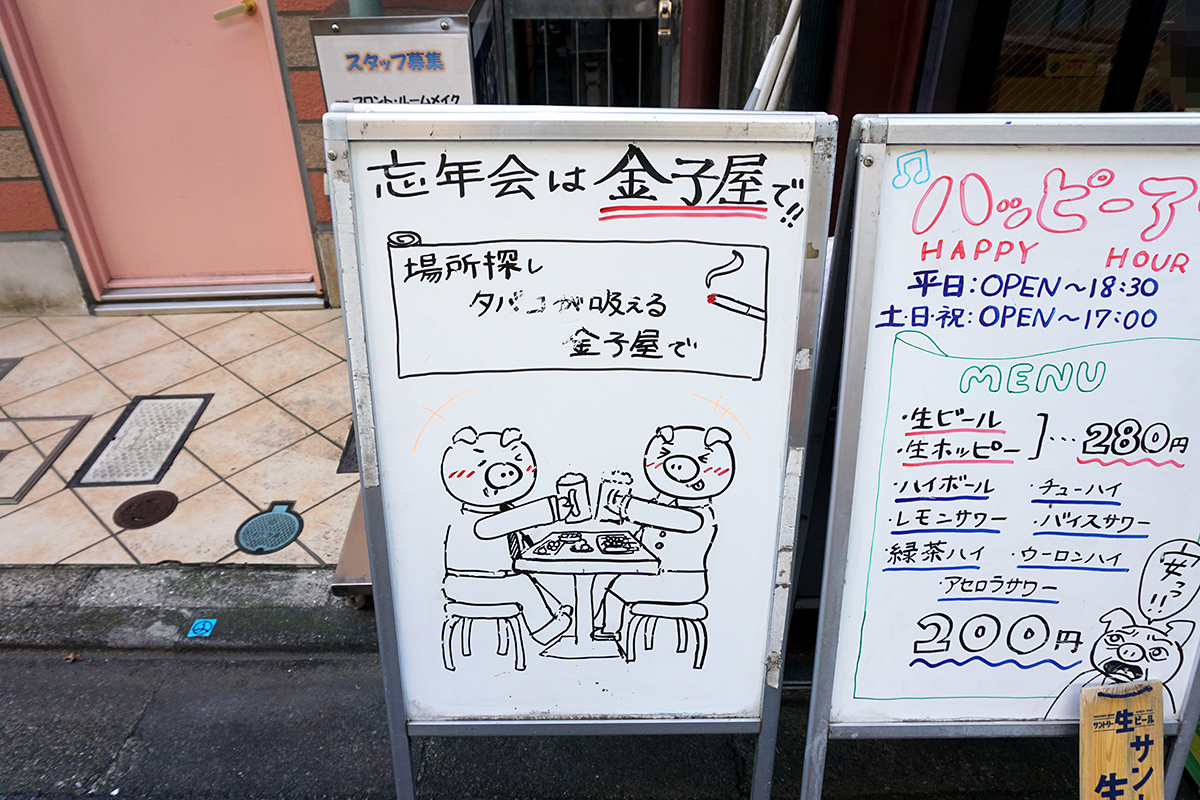 スタッフ募集
フロント・ルームメイク
忘年会は金子屋で!!
場所探し
タバコが吸える
金子屋で
ハッピーア
HAPPY HOUR
平日:OPEN~18:30
土・日・祝:OPEN~17:00
MENU
・生ビール
・生ホッピー
…280円
・ハイボール ・チューハイ
・レモンサワー ・バイスサワー
・緑茶ハイ ・ウーロンハイ
・アセロラサワー
200円
安っ!!
サントリー生ビール
サント
生